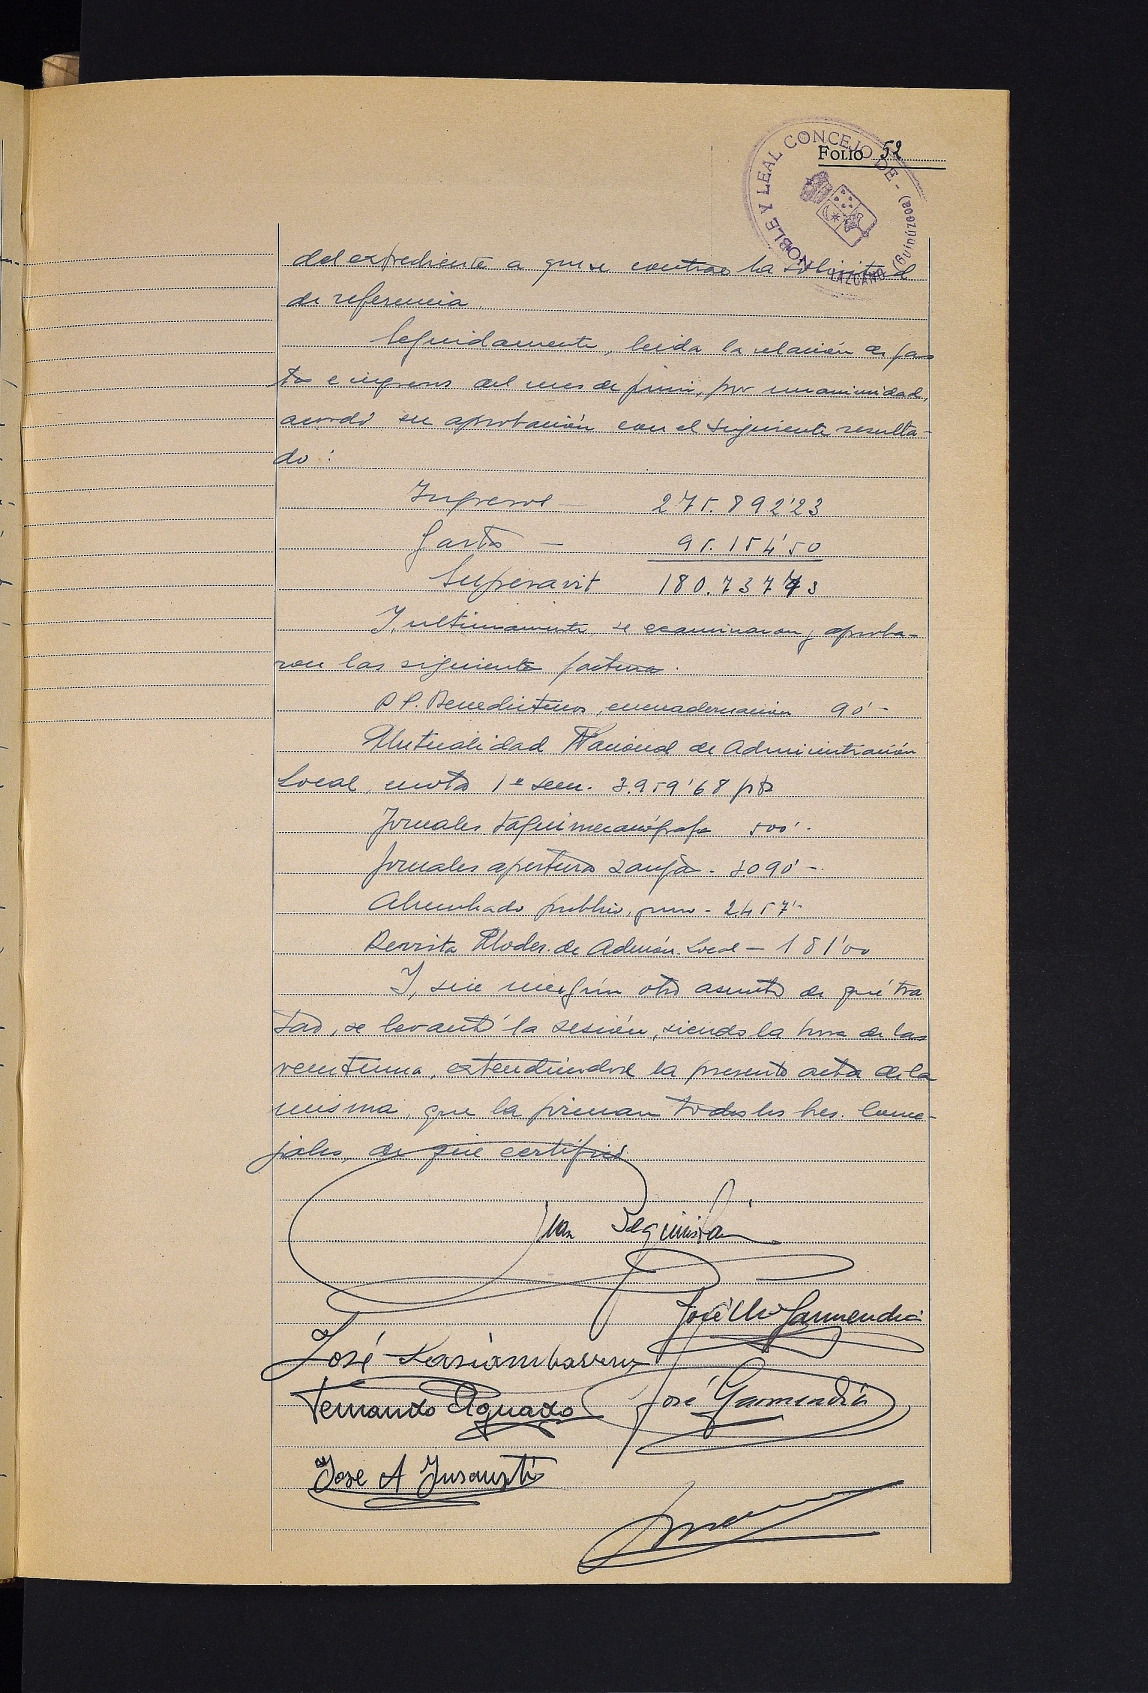 FOLIO 52
NOBLE Y LEAL CONCEJO DE - LAZCANO (GUIPÚZCOA)
del expediente a que se contrae la solicitud
de referencia.
Seguidamente, leida la relación de gas
tos e ingresos del mes de junio, por unanimidad,
acordó su aprobación con el siguiente resulta-
do:
Ingresos — 275.892'23
Gastos — 95.154'50
Superavit 180.737'73
Y, ultimamente se examinaron y aproba-
ron las siguientes facturas.
P.P. Benedictinos, encuadernación 90'-
Mutualidad Nacional de Administración
Local, cuota 1er sem. 3.959'68 pts
Jornales taquimecanógrafa 500'-
Jornales apertura zanja - 3090'-
Alumbrado publico, junio - 2457'-
Revista Moder. de Admón. Local - 181'00
Y, sin ningún otro asunto de qué tra
tar, se levantó la sesión, siendo la hora de las
veintiuna, extendiendose la presente acta de la
misma, que la firman todos los Sres. Conce-
jales, de que certifico.
Juan Beguiristain
José Mª Garmendia
José
Fernando Aguado José Garmendia
Jose A Insausti